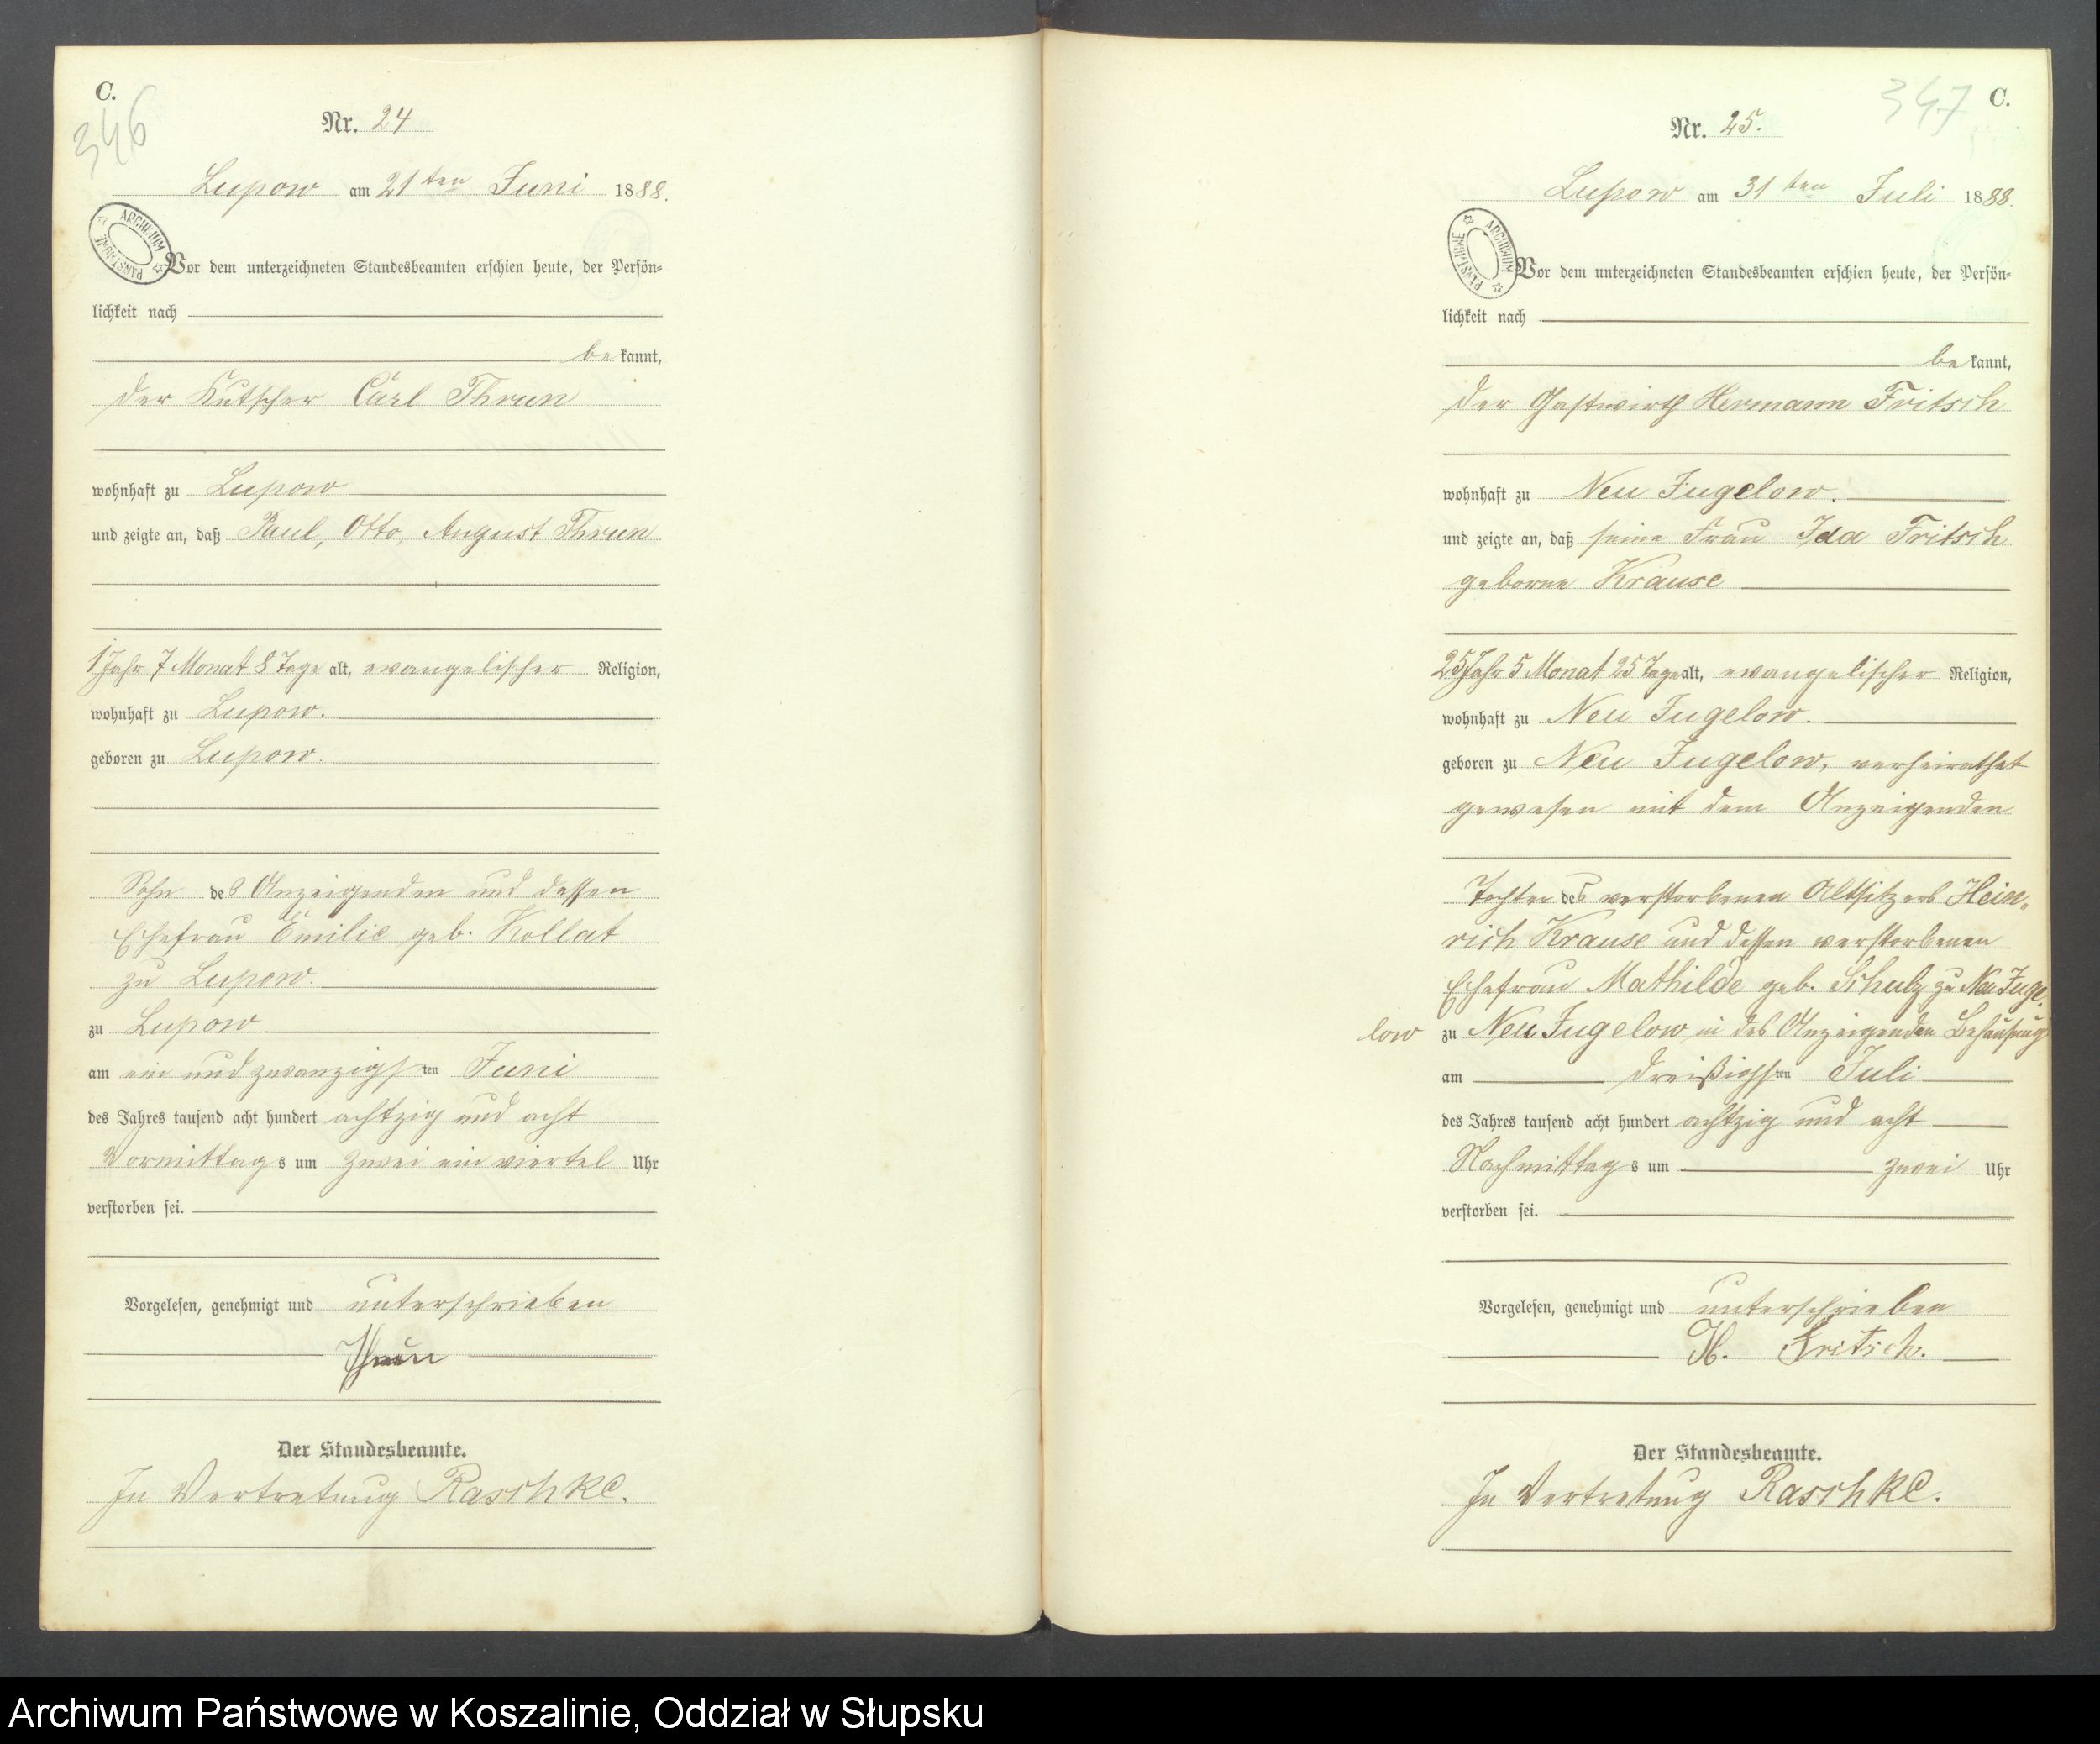 C.
346
Nr. 24
Lupow am 21ten Juni 1888.
ARCHIWUM PAŃSTWOWE
Vor dem unterzeichneten Standesbeamten erschien heute, der Persön-
lichkeit nach
be kannt,
der Kutscher Carl Thrun
wohnhaft zu Lupow
und zeigte an, daß Paul, Otto, August Thrun
1 Jahr 7 Monat 8 Tage alt, evangelischer Religion,
wohnhaft zu Lupow.
geboren zu Lupow.
Sohn des Anzeigenden und dessen
Ehefrau Emilie geb. Kollat
zu Lupow.
zu Lupow
am ein und zwanzigsten Juni
des Jahres tausend acht hundert achtzig und acht
Vormittags um zwei ein viertel Uhr
verstorben sei.
Vorgelesen, genehmigt und unterschrieben
Thrun
Der Standesbeamte.
In Vertretung Raschke.
347
C.
Nr. 25.
Lupow am 31ten Juli 1888.
ARCHIWUM PAŃSTWOWE
Vor dem unterzeichneten Standesbeamten erschien heute, der Persön-
lichkeit nach
be kannt,
der Gastwirth Hermann Fritsch
wohnhaft zu Neu Jugelow.
und zeigte an, daß seine Frau Ida Fritsch
geborne Krause
25 Jahr 5 Monat 25 Tage alt, evangelischer Religion,
wohnhaft zu Neu Jugelow.
geboren zu Neu Jugelow, verheirathet
gewesen mit dem Anzeigenden
Tochter des verstorbenen Altsitzers Hein-
rich Krause und dessen verstorbenen
Ehefrau Mathilde geb. Schulz zu Neu Juge-
low zu Neu Jugelow in des Anzeigenden Behausung
am dreißigsten Juli
des Jahres tausend acht hundert achtzig und acht
Nachmittags um zwei Uhr
verstorben sei.
Vorgelesen, genehmigt und unterschrieben
H. Fritsch.
Der Standesbeamte.
In Vertretung Raschke.
Archiwum Państwowe w Koszalinie, Oddział w Słupsku